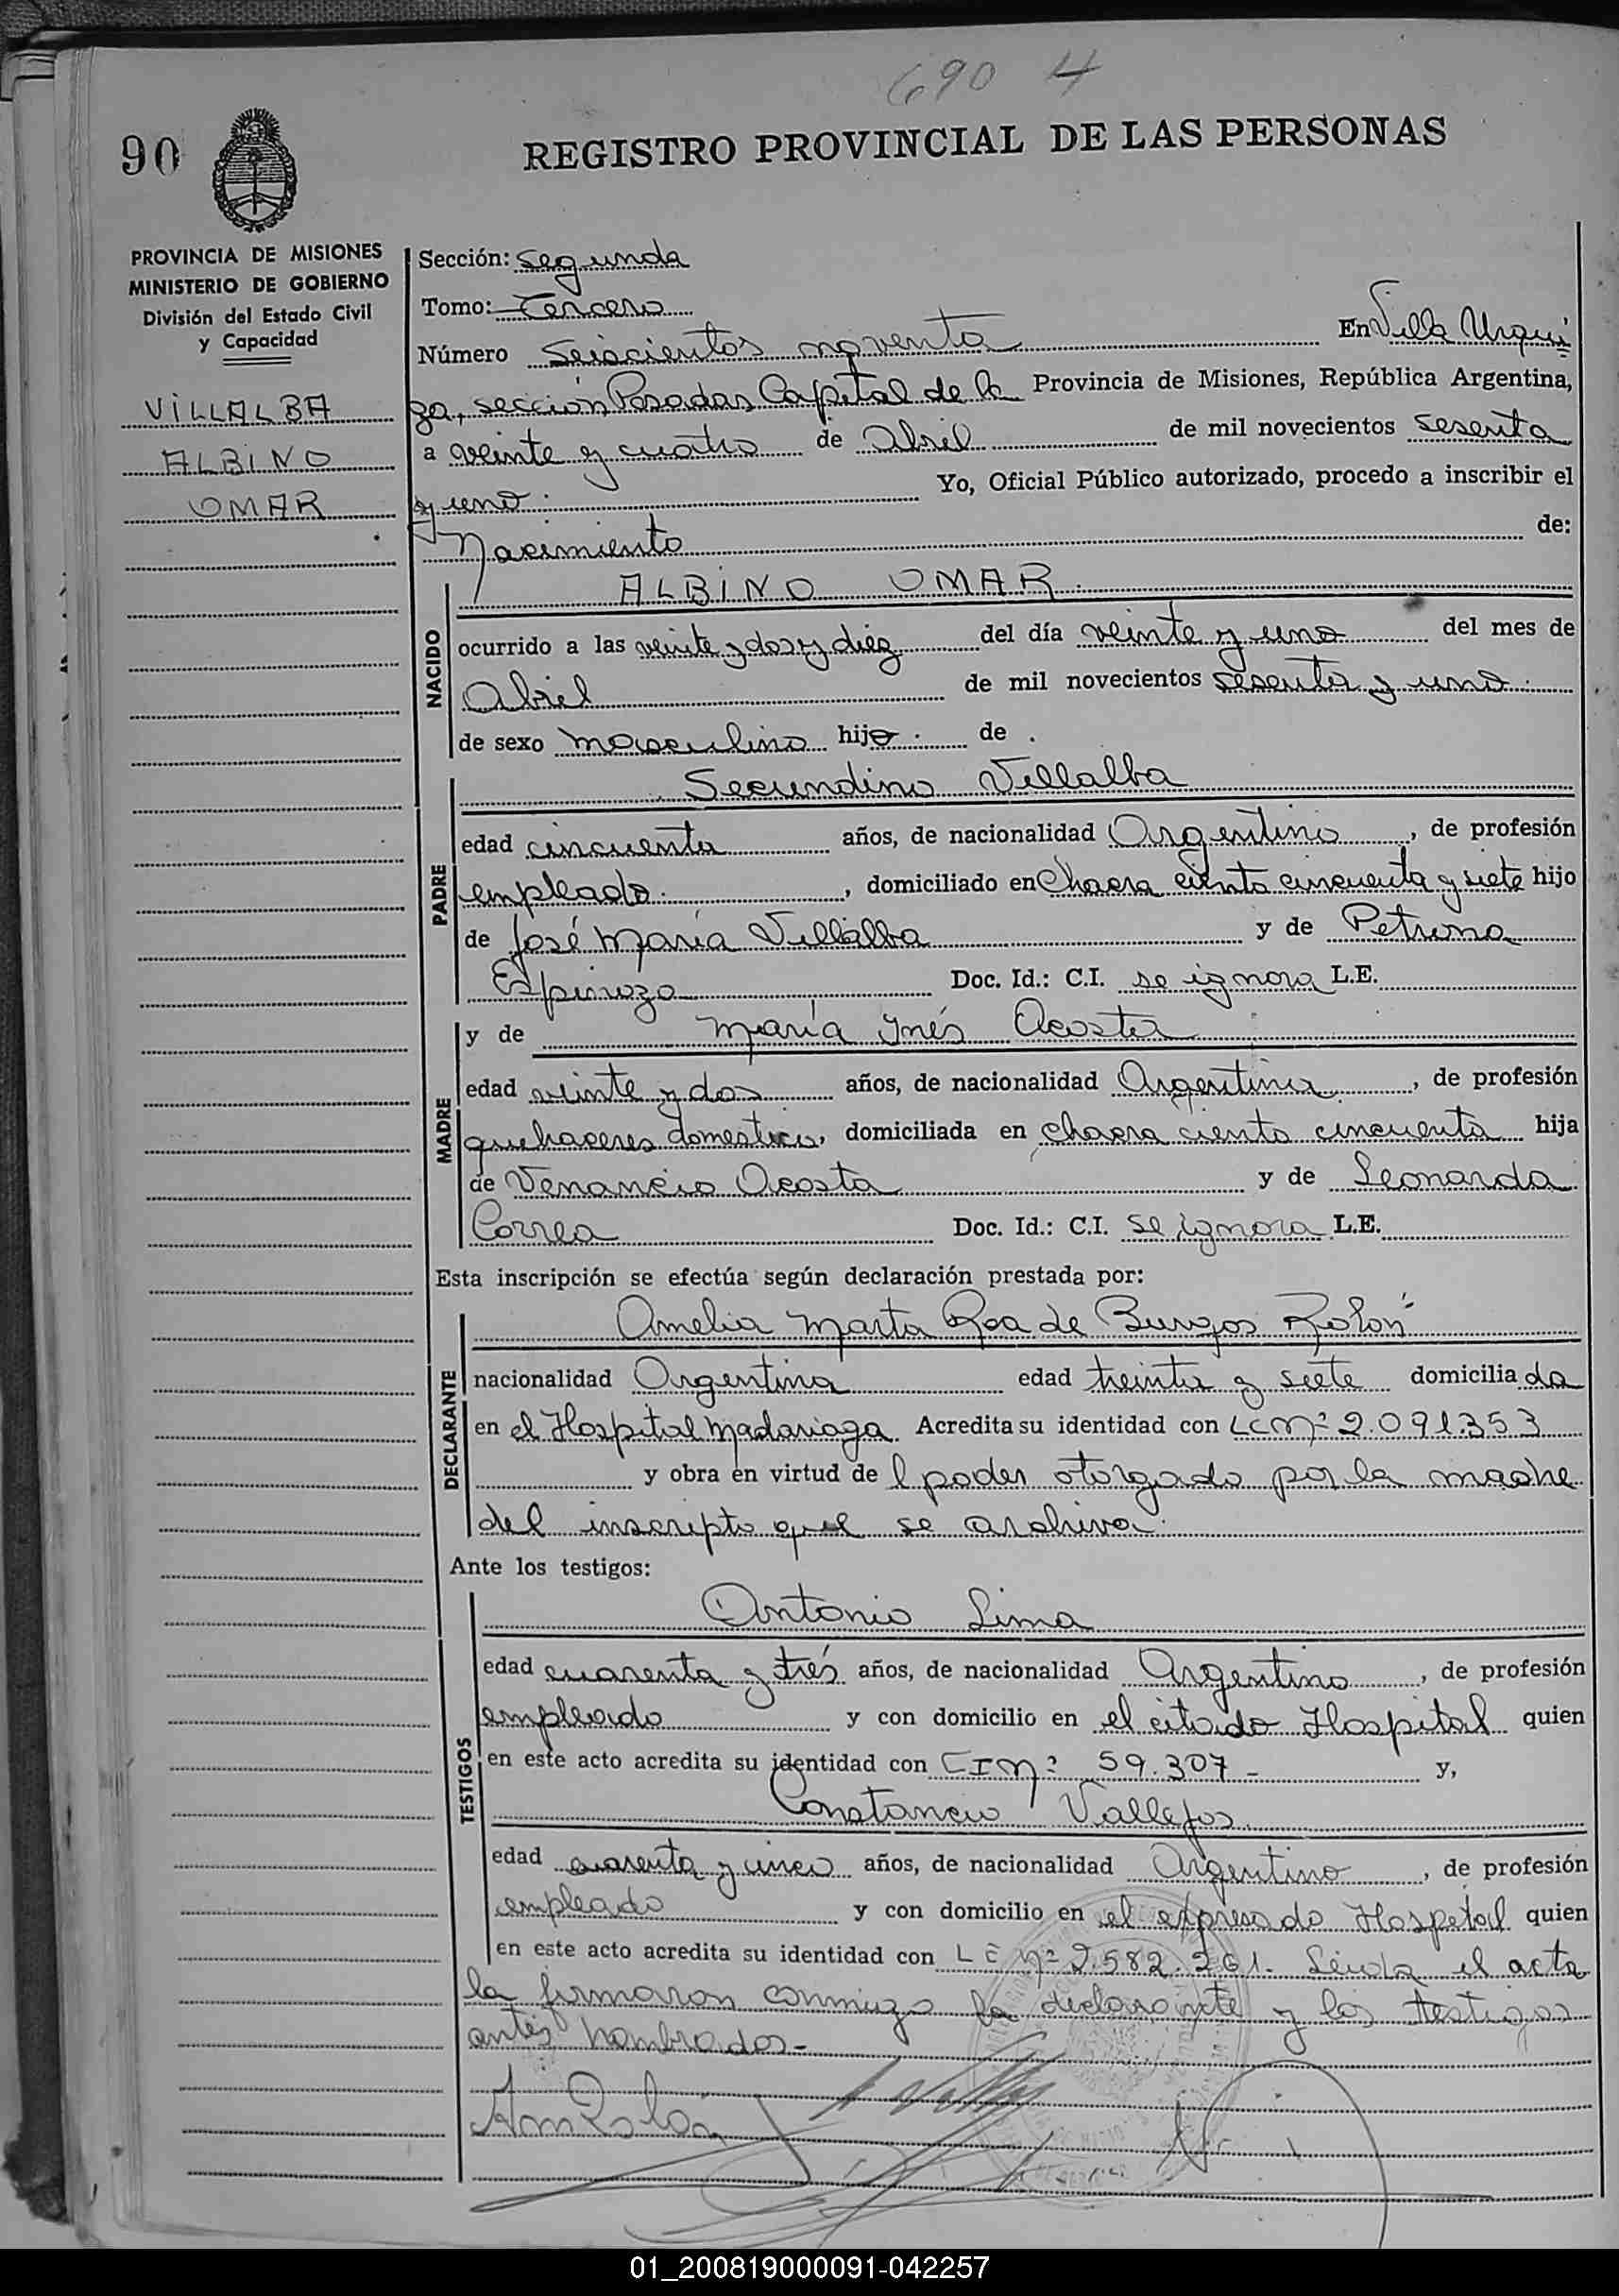 690 4
90
REGISTRO PROVINCIAL DE LAS PERSONAS
PROVINCIA DE MISIONES
MINISTERIO DE GOBIERNO
División del Estado Civil
y Capacidad
VILLALBA
ALBINO
OMAR
Sección: Segunda
Tomo: Tercero
Número Seiscientos noventa En Villa Urqui
za, sección Posadas Capital de la Provincia de Misiones, República Argentina,
a veinte y cuatro de Abril de mil novecientos sesenta
y uno. Yo, Oficial Público autorizado, procedo a inscribir el
Nacimiento de:
NACIDO
ALBINO OMAR.
ocurrido a las veinte y dos y diez del día veinte y uno del mes de
Abril de mil novecientos sesenta y uno.
de sexo masculino hijo. de.
PADRE
Secundino Villalba
edad cincuenta años, de nacionalidad Argentino, de profesión
empleado., domiciliado en Chacra ciento cincuenta y siete hijo
de José María Villalba y de Petrona
Espinoza Doc. Id.: C.I. se ignora L.E.
MADRE
y de María Ynés Acosta
edad veinte y dos años, de nacionalidad Argentina, de profesión
quehaceres domesticos, domiciliada en chacra ciento cincuenta hija
de Venancio Acosta y de Leonarda
Correa Doc. Id.: C.I. se ignora L.E.
Esta inscripción se efectúa según declaración prestada por:
DECLARANTE
Amelia Marta Roa de Burgos Rolón
nacionalidad Argentina edad treinta y siete domiciliada
en el Hospital Madariaga. Acredita su identidad con LC Nº 2.091.353
y obra en virtud del poder otorgado por la madre
del inscripto que se archiva.
Ante los testigos:
TESTIGOS
Antonio Lima
edad cuarenta y trés años, de nacionalidad Argentino, de profesión
empleado y con domicilio en el citado Hospital quien
en este acto acredita su identidad con CI Nº 59.307 - y,
Constancio Vallejos
edad cuarenta y cinco años, de nacionalidad Argentino, de profesión
empleado y con domicilio en el expresado Hospital quien
en este acto acredita su identidad con LE Nº 2.582.261. Leída el acta
la firmaron conmigo la declarante y los testigos
antes nombrados.-
01_200819000091-042257